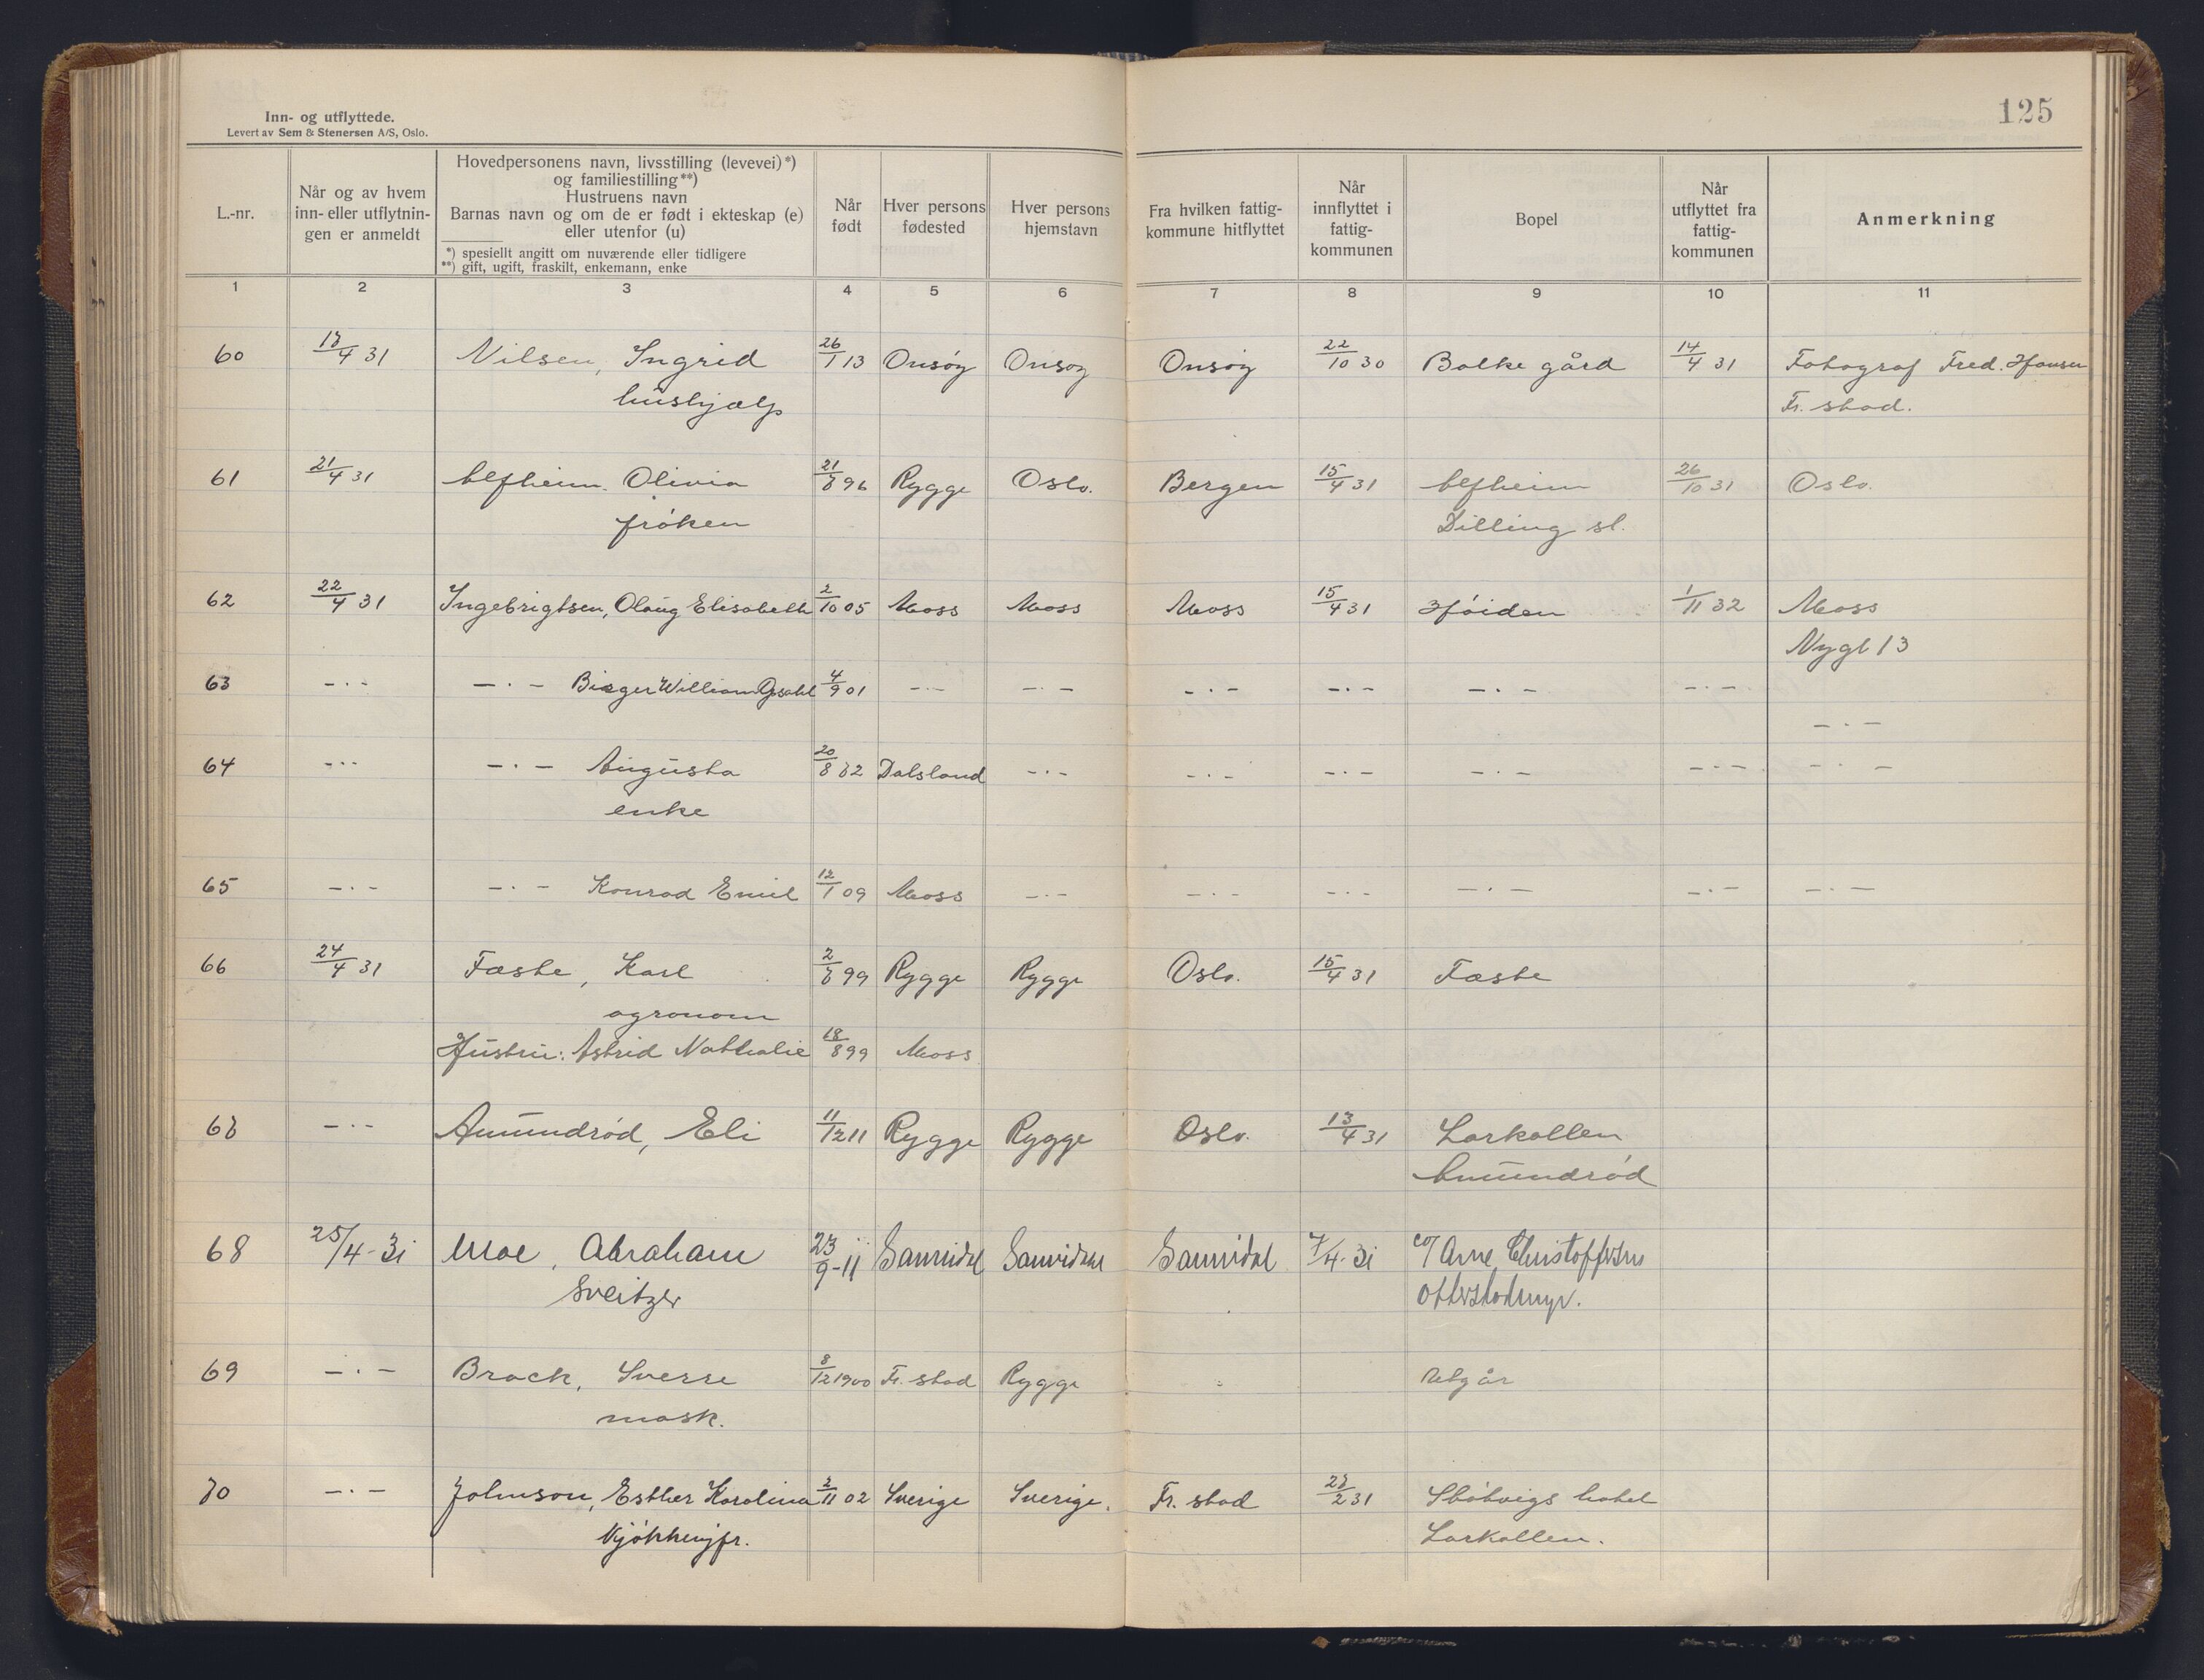 Inn- og utflyttede.
Levert av Sem & Stenersen A/S, Oslo.
125
L.-nr.
Når og av hvem
inn- eller utflytnin-
gen er anmeldt
Hovedpersonens navn, livsstilling (levevei)*)
og familiestilling**)
Hustruens navn
Barnas navn og om de er født i ekteskap (e)
eller utenfor (u)
*) spesiellt angitt om nuværende eller tidligere
**) gift, ugift, fraskilt, enkemann, enke
Når
født
Hver persons
fødested
Hver persons
hjemstavn
Fra hvilken fattig-
kommune hitflyttet
Når
innflyttet i
fattig-
kommunen
Bopel
Når
utflyttet fra
fattig-
kommunen
Anmerkning
1 2 3 4 5 6 7 8 9 10 11
60 13/4 31 Nilsen, Ingrid 26/1 13 Onsøy Onsøy Onsøy 22/10 30 Bolke gård 14/4 31 Fotograf Fred. Hansen
hushjælp Fr. stad.
61 21/4 31 Alfheim Olivia 21/7 96 Rygge Oslo. Bergen 15/4 31 Alfheim 26/10 31 Oslo.
frøken Dilling st.
62 22/4 31 Ingebrigtsen, Olaug Elisabeth 2/10 05 Moss Moss Moss 15/4 31 Høiden 1/11 32 Moss
Nygt 13
63 -·- -·- Birger William 4/9 01 -·- -·- -·- -·- -·- -·-
-·-
64 -·- -·- Augusta 20/8 72 Dalsland -·- -·- -·- -·- -·- -·-
enke
65 -·- -·- Konrad Emil 12/1 09 Moss -·- -·- -·- -·- -·- -·-
66 24/4 31 Fæste, Karl 2/7 99 Rygge Rygge Oslo. 15/4 31 Fæste
agronom
Hustru: Astrid Nathalie 18/8 99 Moss
67 -·- Amundrød, Eli 11/12 11 Rygge Rygge Oslo. 13/4 31 Larkollen
Amundrød
68 25/4-31 Moe, Abraham 23/9-11 Sannidal Sannidal Sannidal 7/4-31 co/ Arne Christoffersen
Sveitzer Otterstadmyr.
69 -·- Brack, Sverre 8/12 1900 Fr. stad Rygge Utgår
mask.
70 -·- Johnson, Esther Karolina 2/11 02 Sverige Sverige. Fr. stad 27/2 31 Støtvigs hotel
Kjøkkenjfr. Larkollen.